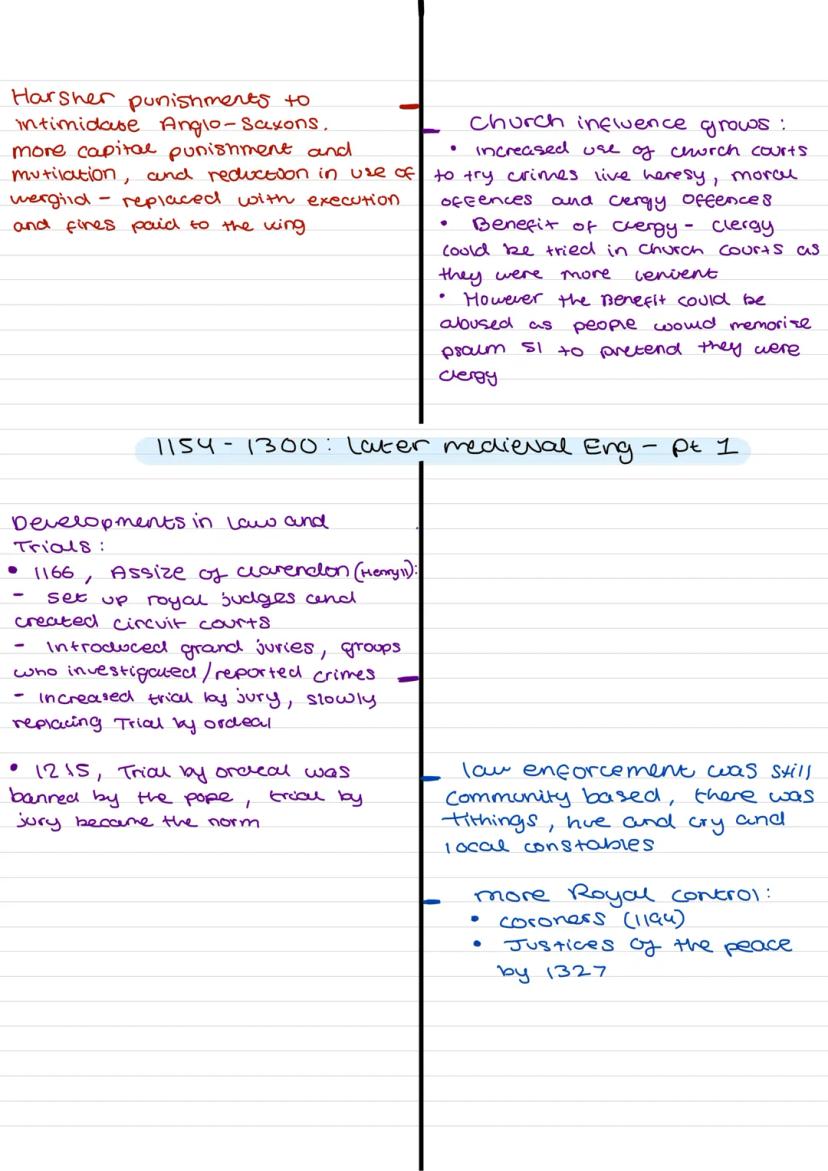 Harsher punishments to
intimidate Anglo-Saxons.
more capital punishment and
mutilation, and reduction in use of
wergild - replaced with execution
and fines paid to the king
Church influence grows:
• Increased use of church courts
to try crimes like heresy, moral
offences and clergy offences
• Benefit of clergy - clergy
could be tried in church courts as
they were more lenient
• However the Benefit could be
abused as people would memorise
psalm 51 to pretend they were
clergy
1154-1300: later medieval Eng - pt 1
Developments in law and
Trials:
• 1166, Assize of Clarendon (Henry II):
- set up royal judges and
created circuit courts
- Introduced grand juries, groups
who investigated/reported crimes
- increased trial by jury, slowly
replacing Trial by ordeal
• 1215, Trial by ordeal was
banned by the pope, trial by
jury became the norm
law enforcement was still
community based, there was
tithings, hue and cry and
local constables
more Royal control:
• coroners (1194)
• Justices of the peace
by 1327